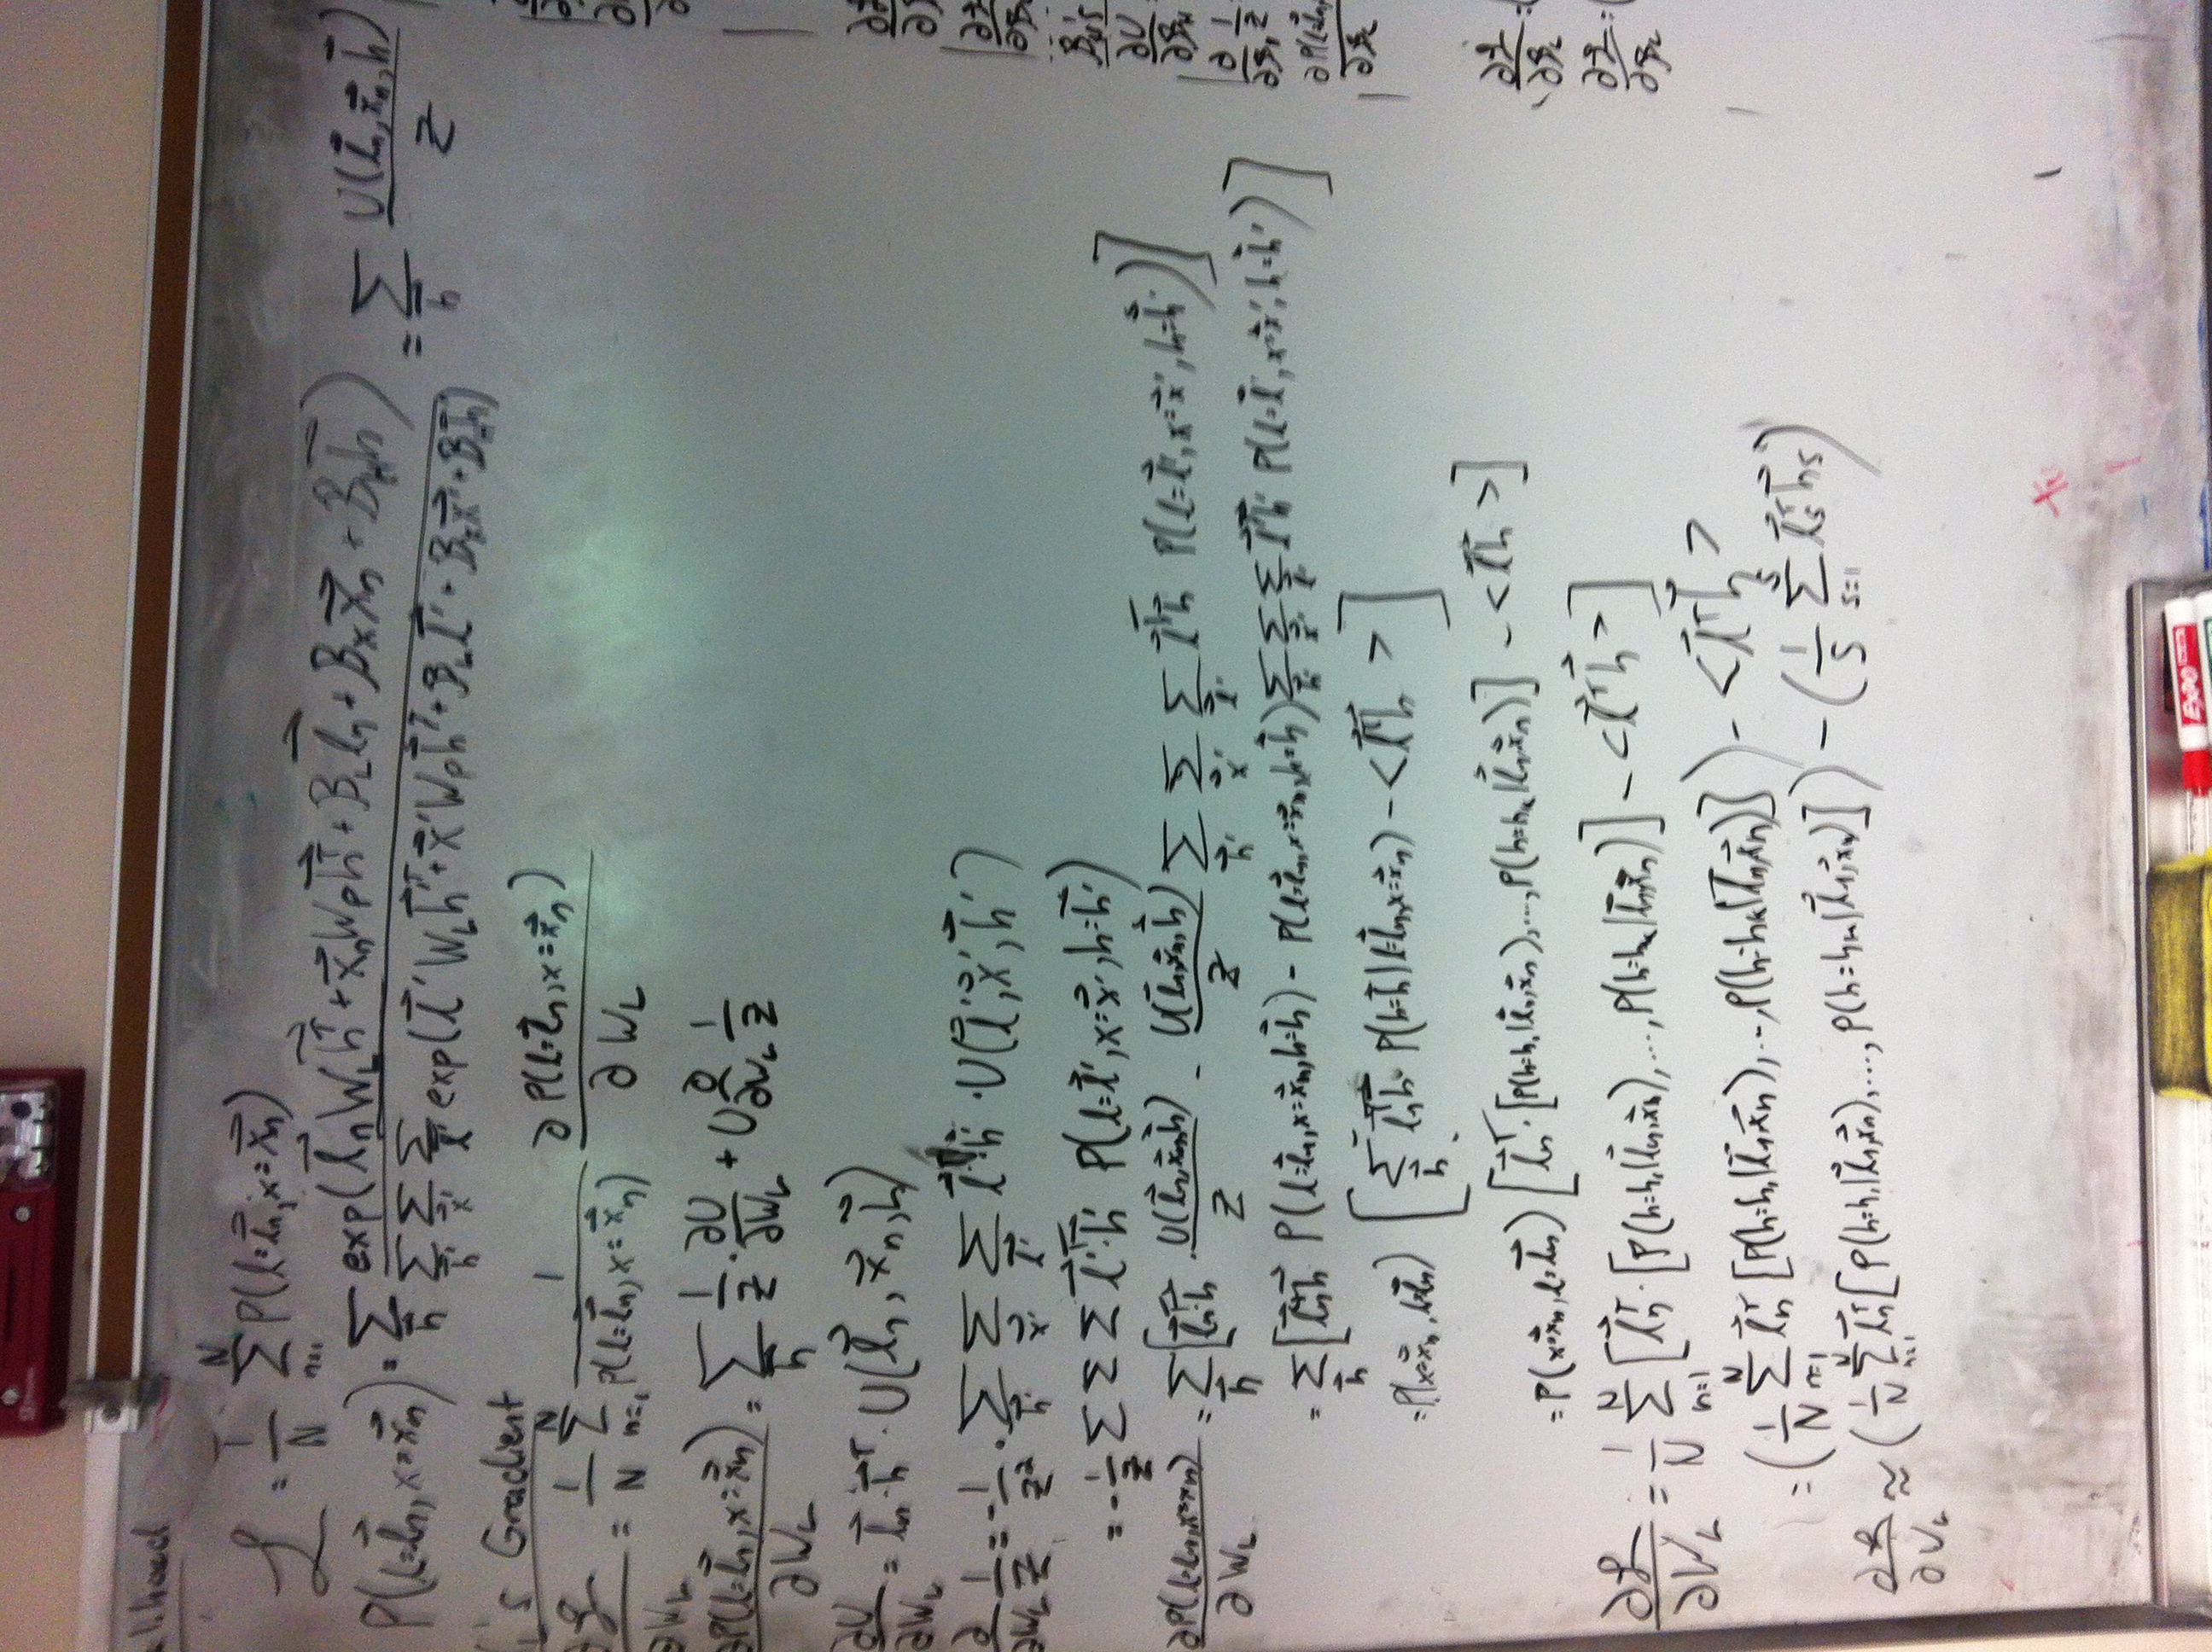 𝓛 = 1/N Σ_{n=1}^{N} P(l=l⃗_n, x=x⃗_n)
P(l=l⃗_n, x=x⃗_n) = Σ_{h⃗} exp(l⃗_n W_L h⃗^T + x⃗_n W_P h⃗^T + B_L l⃗_n + B_X x⃗_n + B_H h⃗) / Σ_{h⃗'} Σ_{x⃗'} Σ_{l⃗'} exp(l⃗' W_L h⃗'^T + x⃗' W_P h⃗'^T + B_L l⃗' + B_X x⃗' + B_H h⃗') = Σ_{h⃗} U(l⃗_n, x⃗_n, h⃗) / Z
's Gradient
∂𝓛/∂W_L = 1/N Σ_{n=1}^{N} 1/P(l=l⃗_n, x=x⃗_n) ∂P(l=l⃗_n, x=x⃗_n)/∂W_L
∂P(l=l⃗_n, x=x⃗_n)/∂W_L = Σ_{h⃗} 1/Z · ∂U/∂W_L + U ∂/∂W_L 1/Z
∂U/∂W_L = l⃗_n · h⃗^T · U(l⃗_n, x⃗_n, h⃗)
∂/∂W_L 1/Z = -1/Z² · Σ_{h⃗'} Σ_{x⃗'} Σ_{l⃗'} l⃗'^T h⃗' · U(l⃗', x⃗', h⃗')
= -1/Z Σ Σ Σ l⃗'^T · h⃗' P(l=l⃗', x=x⃗', h=h⃗')
∂P(l=l_n, x=x_n)/∂W_L = Σ_{h⃗} [l⃗_n^T h⃗ · U(l⃗_n, x⃗_n, h⃗)/Z - U(l⃗_n, x⃗_n, h⃗)/Z Σ_{h⃗'} Σ_{x⃗'} Σ_{l⃗'} l⃗'^T h⃗ P(l=l⃗', x=x⃗', h=h⃗')]
= Σ_{h⃗} [l⃗_n^T h⃗ P(l=l⃗_n, x=x⃗_n, h=h⃗) - P(l=l⃗_n, x=x⃗_n, h=h⃗) Σ_{h⃗'} Σ_{x⃗'} Σ_{l⃗'} l⃗'^T h⃗' P(l=l⃗', x=x⃗', h=h⃗')]
= P(x=x⃗_n, l=l⃗_n) [Σ_{h⃗} l⃗_n^T h⃗ P(h=h⃗ | l=l⃗_n, x=x⃗_n) - <l⃗^T h⃗>]
= P(x=x⃗_n, l=l⃗_n) [l⃗_n^T · [P(h=h_1 | l⃗_n, x⃗_n), ..., P(h=h_k | l⃗_n, x⃗_n)] - <l⃗^T h⃗>]
∂𝓛/∂W_L = 1/N Σ_{n=1}^{N} [l⃗_n^T · [P(h=h_1 | l⃗_n, x⃗_n), ..., P(h=h_k | l⃗_n, x⃗_n)] - <l⃗^T h⃗>]
= (1/N Σ_{n=1}^{N} l⃗_n^T [P(h=h_1 | l⃗_n, x⃗_n), ..., P(h=h_k | l⃗_n, x⃗_n)]) - <l⃗^T h⃗>
∂𝓛/∂W_L ≈ (1/N Σ_{n=1}^{N} l⃗_n^T [P(h=h_1 | l⃗_n, x⃗_n), ..., P(h=h_k | l⃗_n, x⃗_n)]) - (1/S Σ_{s=1}^{S} l⃗_s^T h⃗_s)
B_H's
∂U
EXPO